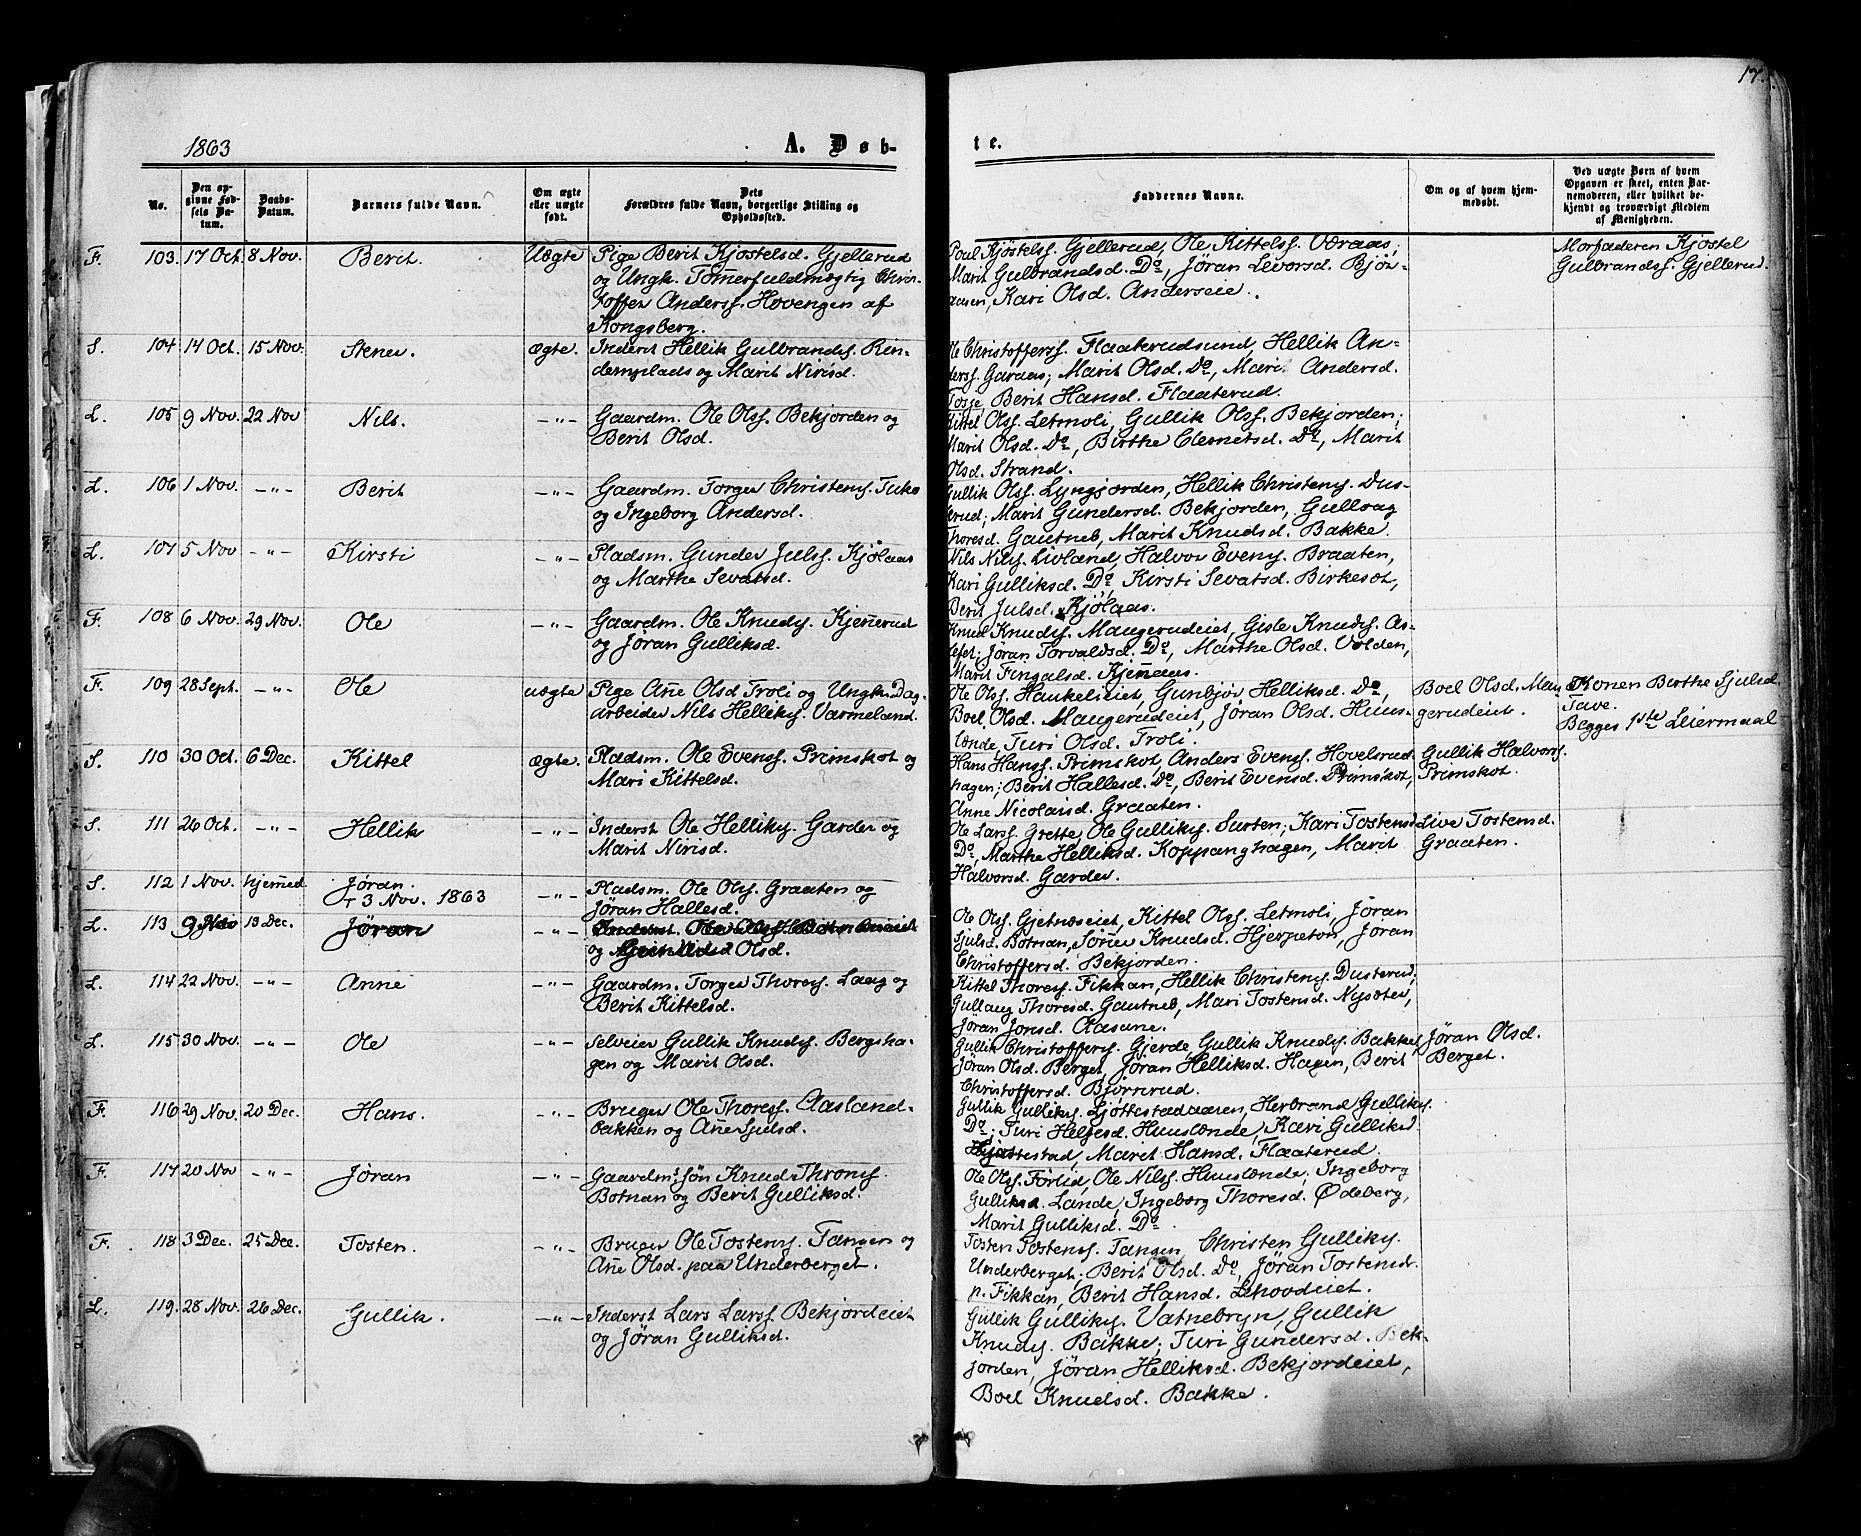 17.
1863
A. Døb-
te.
No.
Den op-
givne Fød-
sels Da-
tum.
Daabs-
Datum.
Barnets fulde Navn.
Om ægte
eller uægte
født.
Dets
Forældres fulde Navn, borgerlige Stilling og
Opholdssted.
Faddernes Navne.
Om og af hvem hjem-
medøbt.
Ved uægte Børn af hvem
Opgaven er skeet, enten Bar-
nemoderen, eller hvilket be-
kjendt og troværdigt Medlem
af Menigheden.
F. 103. 17 Oct. 8 Nov. Berit. Uægte
Pige Berit Kjøstelsd. Gjellerud
og Ungk. Tømerfuldmægtig Chris-
toffer Anderss. Hovengen af
Kongsberg.
Poul Kjøstelss. Gjellerud, Ole Kittelss. Væraas;
Marit Gulbrandsd. Do, Jøran Levorsd. Bjøn-
aasen, Kari Olsd. Anderseie.
Morfaderen Kjøstel
Gulbrandss. Gjellerud.
S. 104 14 Oct. 15 Nov. Stener. ægte.
Inderst Hellik Gulbrandss. Rin-
demplads og Marit Nirisd.
Ole Christofferss. Flaaterudsund, Hellik An-
derss. Garaas; Marit Olsd. Do, Mari Andersd.
Berit Hansd. Flaaterud.
L. 105 9 Nov. 22 Nov Nils. -"-
Gaardm. Ole Olss. Bekjorden og
Berit Olsd.
Kittel Olss. Letmoli, Gullik Olss. Bekjorden;
Marit Olsd. Do, Birthe Clemetsd. Do, Marit
Olsd. Strand.
L. 106 1 Nov. -"- Berit -"-
Gaardm. Torger Christens. Tuko
og Ingeborg Andersd.
Gullik Olss. Lyngjorden, Hellik Christens. Dus-
terud; Marit Gundersd. Bekjorden, Gullaug
Thoresd. Gautneb, Marit Knudsd. Bakke.
L. 107 5 Nov -"- Kirsti -"-
Pladsm. Gunder Julss. Kjølaas
og Marthe Sevatsd.
Nils Nilss. Livland, Halvor Evens. Braaten,
Kari Gulliksd. Do, Kirsti Sevatsd. Birkesot,
Berit Julsd. Kjølaas.
F. 108 6 Nov. 29 Nov. Ole -"-
Gaardm. Ole Knuds. Kjennerud
og Jøran Gulliksd.
Knud Knuds. Maugerudeiet, Gisle Knuds. As-
lefet; Jøran Torvaldsd. Do, Marthe Olsd. Volden,
Marit Fingalsd. Kjenaas.
F. 109 28 Sept. -"- Ole uægte
Pige Ane Olsd Troli og Ungk. Dag-
arbeider Nils Helliks. Varmeland.
Ole Olss. Haukelieiet, Gunbjør Helliksd. Do,
Boel Olsd. Maugerudeiet, Jøran Olsd. Huus-
lænde, Turi Olsd. Troli.
Boel Olsd. Mau-
gerudeiet.
Konen Birthe Sjulsd.
Tave.
Begges 1ste Leiermaal
S. 110 30 Oct. 6 Dec. Kittel ægte.
Pladsm. Ole Evenss. Primskot og
Mari Kittelsd.
Hans Hanss. Primskot, Anders Evens. Hovelsrud-
hagen; Berit Hallesd. Do, Berit Evensd. Primskot,
Anne Nicolaisd. Graaten.
Gullik Halvorss.
Primskot.
S. 111 26 Oct. -"- Hellik -"-
Inderst Ole Helliks. Garder og
Marit Nirisd.
Ole Larss. Grette, Ole Gulliks. Surten; Kari Tostensd.
Do, Marthe Helliksd. Koppanghagen, Marit
Halvorsd. Garder.
Live Tostensd.
Graaten.
S. 112 1 Nov. hjemmed. Jøran.
† 3 Nov. 1863 -"-
Pladsm. Ole Olss. Graaten og
Jøran Hallesd.
L. 113 9 Nov 13 Dec. Jøran -"-
og Olsd.
Ole Olss. Gjetnæseiet, Kittel Olss. Letmoli, Jøran
Sjulsd. Botnan, Tørner Knudsd. Hjerpeton, Jøran
Christoffersd. Bekjorden.
L. 114 22 Nov. -"- Anne -"-
Gaardm. Torger Thoress. Laag og
Berit Kittelsd.
Kittel Thoress. Fikkan, Hellik Christens. Dusterud;
Gullaug Thoresd. Gautneb, Mari Tostensd. Nysæter,
Jøran Jonsd. Aasane.
L. 115 30 Nov. -"- Ole -"-
Selveier Gullik Knuds. Bergsha-
gen og Marit Olsd.
Gullik Christofferss. Gjerde, Gullik Knuds. Bakke;
Jøran Olsd. Berget, Jøran Helliksd. Hagen, Berit
Christoffersd. Bjørnerud.
Jøran Olsd.
Berget.
F. 116 29 Nov. 20 Dec. Hans. -"-
Bruger Ole Thoress. Aasland-
bakken og Ane Sjulsd.
Gullik Gulliks. Ljøttestadaasen, Herbrand Gulliks.
Do; Turi Helgesd. Huuslænde, Kari Gulliksd.
Ljøttestad, Marit Hansd. Flaaterud.
F. 117 20 Nov -"- Jøran -"-
Gaardm. Søn Knud Throns.
Botnan og Berit Gulliksd.
Ole Olss. Førlid, Ole Nilss. Huuslænde; Ingeborg
Gulliksd. Lande, Ingeborg Thoresd. Ødeberg,
Marit Gulliksd. Do.
F. 118 3 Dec. 25 Dec. Tosten. -"-
Bruger Ole Tostens. Tangen og
Ane Olsd. paa Underberget.
Tosten Tostens. Tangen, Christen Gulliks.
Underberget; Berit Olsd. Do, Jøran Tostensd.
n. Fikkan, Berit Hansd. Lehovdeiet.
L. 119. 28 Nov. 26 Dec. Gullik. -"-
Inderst Lars Larss. Bekjordeiet
og Jøran Gulliksd.
Gullik Gulliks. Vatnebryn, Gullik
Knuds. Bakke; Turi Gundersd. Bek-
jorden, Jøran Helliksd. Bekjordeiet,
Boel Knudsd. Bakke.